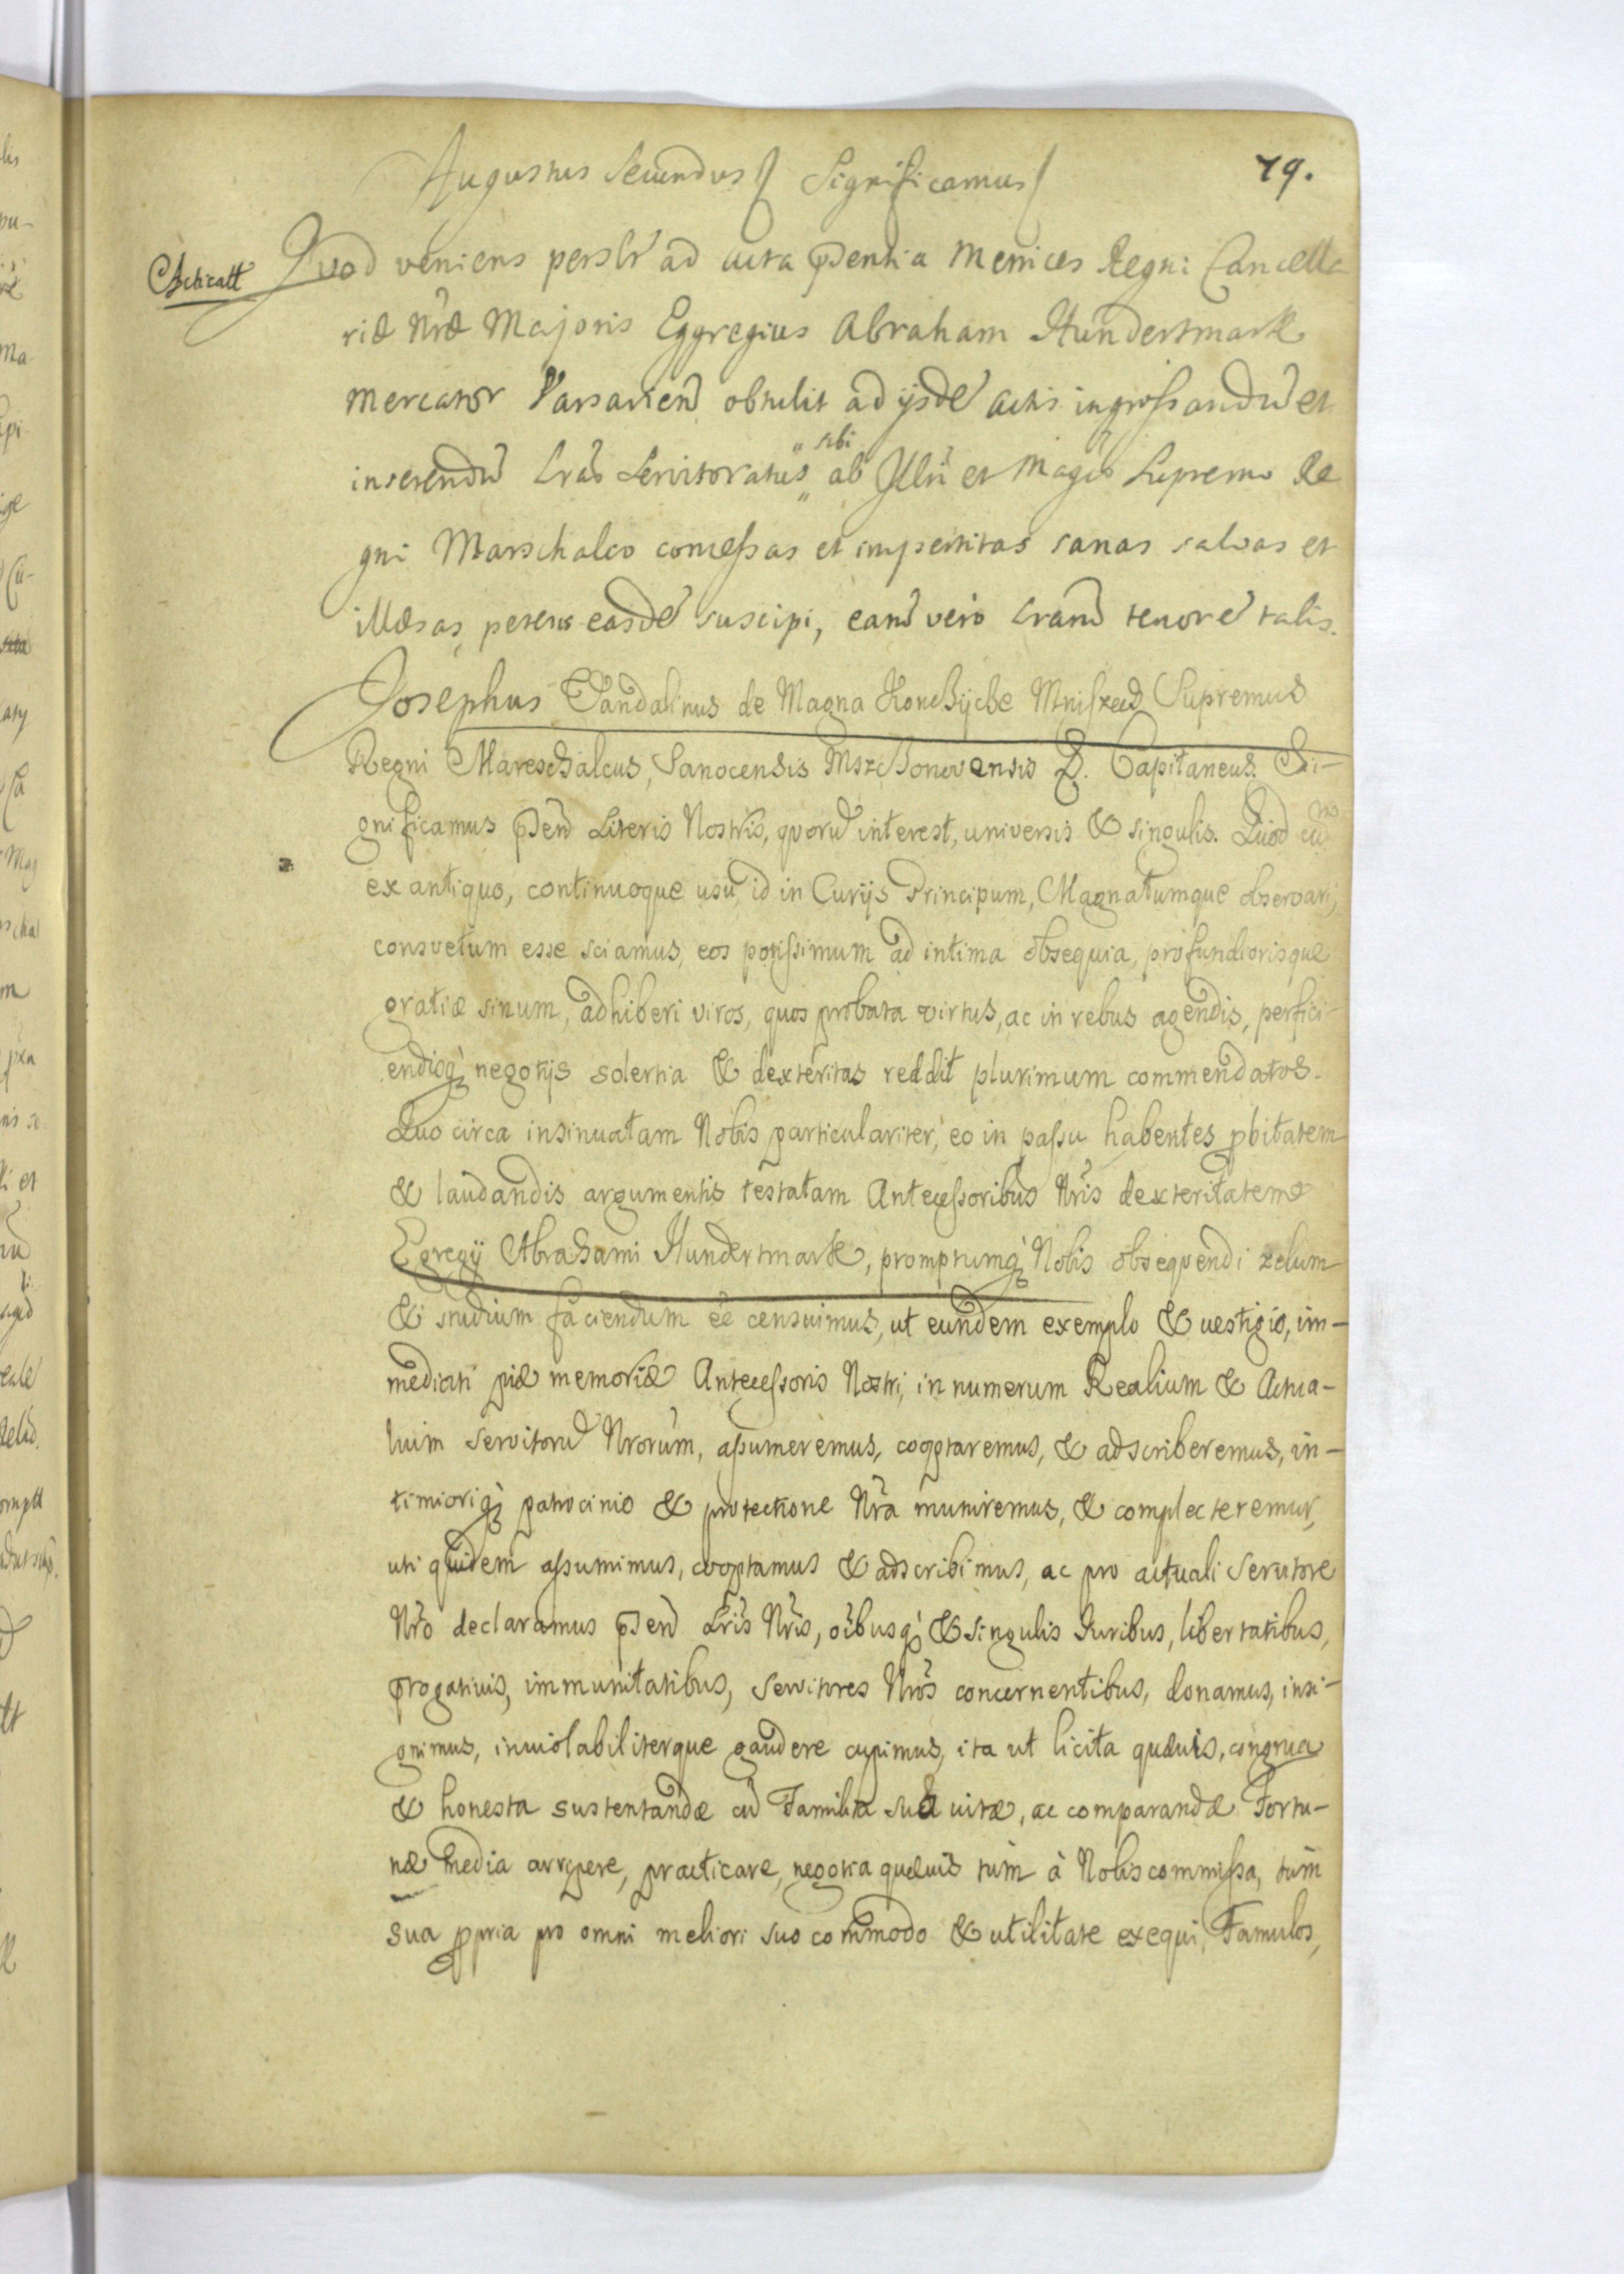 Augustus Secundus Significamus
79.
Acticatt
Quod veniens persolr ad acta pñentia Metrices Regni Cancella
riæ Nræ Majoris Eggregius Abraham Hundertmark
Mercator Varsavien obtulit ad ijsdē actis ingrossandū et
sibi
inserendū Lras Servitoratus ab Illri et Magco Supremo Re
gni Marschalco concessas et impertitas sanas salvas et
illæsas, petens easdē suscipi, earū vero Lrarū tenore talis.
Josephus Vandalinus de Magna Konchÿche Mniszech Supremus
Regni Mareschalcus, Sanocensis Mszchonovensis &. Capitaneus. Si-
gnificamus pñen Literis Nostris, quorū interest, universis & singulis. Quod cū
ex antiquo, continuoque usu, id in Curijs Principum, Magnatumque observari,
consvetum esse sciamus, eos potissimum ad intima obsequia, profundiorisque
gratiæ sinum, adhiberi viros, quos probata virtus, ac in rebus agendis, perfici-
endisq negotijs solertia & dexteritas reddit plurimum commendatos.
Quo circa insinuatam Nobis particulariter, eo in passu habentes pbitatem
& laudandis argumentis testatam Antecessoribus Nris dexteritatem
Egregij Abrahami Hundertmark, promptumq Nobis obsequendi zelum
& studium faciendum ee censuimus, ut eundem exemplo & vestigio, im-
mediati piæ memoriæ Antecessoris Nostri, in numerum Realium & Actua-
lium Servitorū Nrorum, assumeremus, cooptaremus, & adscriberemus, in-
timioriq patrocinio & protectione Nra muniremus, & complecteremur,
uti quidem assumimus, cooptamus & adscribimus, ac pro actuali Servitore
Nro declaramus pñen Lris Nris, oibusq & singulis Juribus, libertatibus,
progativis, immunitatibus, Servitores Nros concernentibus, donamus, insi-
gnimus, inviolabiliterque gaudere cupimus, ita ut licita quævis, congrua
& honesta sustentandæ cū Familia sua vitæ, ac comparandæ Fortu-
næ media arripere, practicare, negotia quævis tùm à Nobis commissa, tùm
sua ppria pro omni meliori suo commodo & utilitate exequi, Famulos,